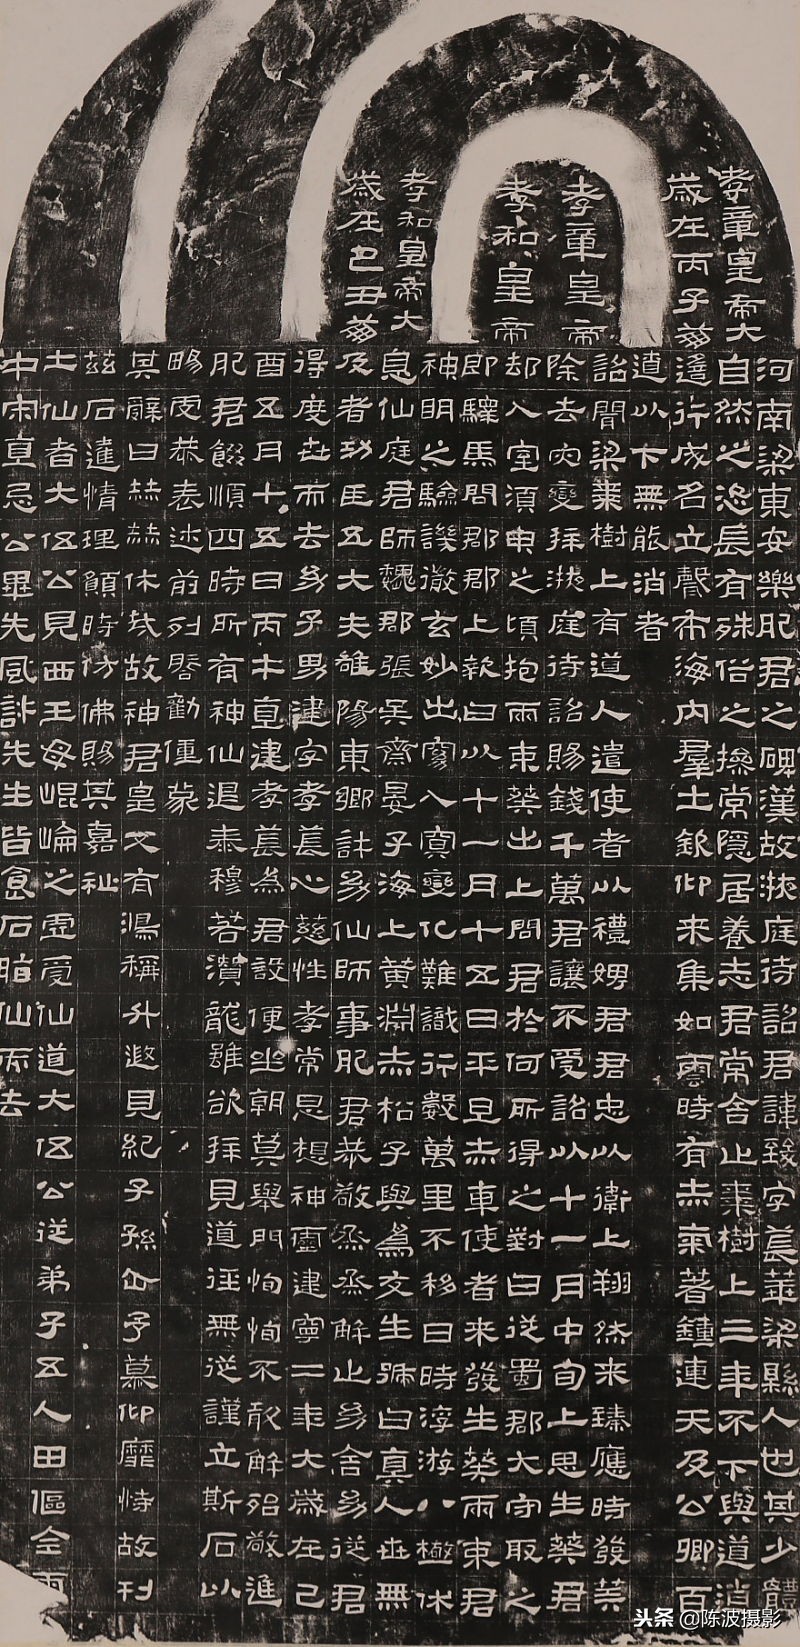 孝章皇帝
孝和皇帝
孝章皇帝大
歲在丙子崩
孝和皇帝大
歲在己丑崩
河南梁東安樂肥君之碑漢故掖庭待詔君諱致字萇華梁縣人也其少體
自然之恣長有殊俗之操常隱居養志君常舍止棗樹上三年不下與道逍
遙行成名立聲布海內羣士欽仰來集如雲時有赤氣著鍾連天及公卿百
遼以下無能消者
詔聞梁棗樹上有道人遣使者以禮娉君君忠以衛上翔然來臻應時發筭
除去災變拜掖庭待詔賜錢千萬君讓不受詔以十一月中旬上思生葵君
却入室須臾之頃抱兩束葵出上問君於何所得之對曰從蜀郡大守取之
即驛馬問郡郡上報曰以十一月十五日平旦赤車使者來發生葵兩束君
神明之驗譏徹玄妙出窈入冥變化難識行數萬里不移日時浮游八極休
息仙庭君師魏郡張吳齋晏子海上黃淵赤松子與為友生號曰真人世無
及者功臣五大夫雒陽東鄉許幼仙師事肥君恭敬烝烝解止幼舍幼從君
得度世而去幼子男建字孝萇心慈性孝常思想神靈建寧二年大歲在己
酉五月十五日丙午直建孝萇為君設便坐朝莫舉門恂恂不敢解殆敬進
肥君餟順四時所有神仙退泰穆若潛龍雖欲拜見道徑無從謹立斯石以
暢虔恭表述前列啓勸僮蒙
其辭曰赫赫休哉故神君皇又有鴻稱升遐見紀子孫企予慕仰靡恃故刊
茲石達情理願時仿佛賜其嘉祉
土仙者大伍公見西王母崐崘之虛受仙道大伍公從弟子五人田傴全雨
中宋直忌公畢先風許先生皆食石脂仙而去
头条 @陈波摄影